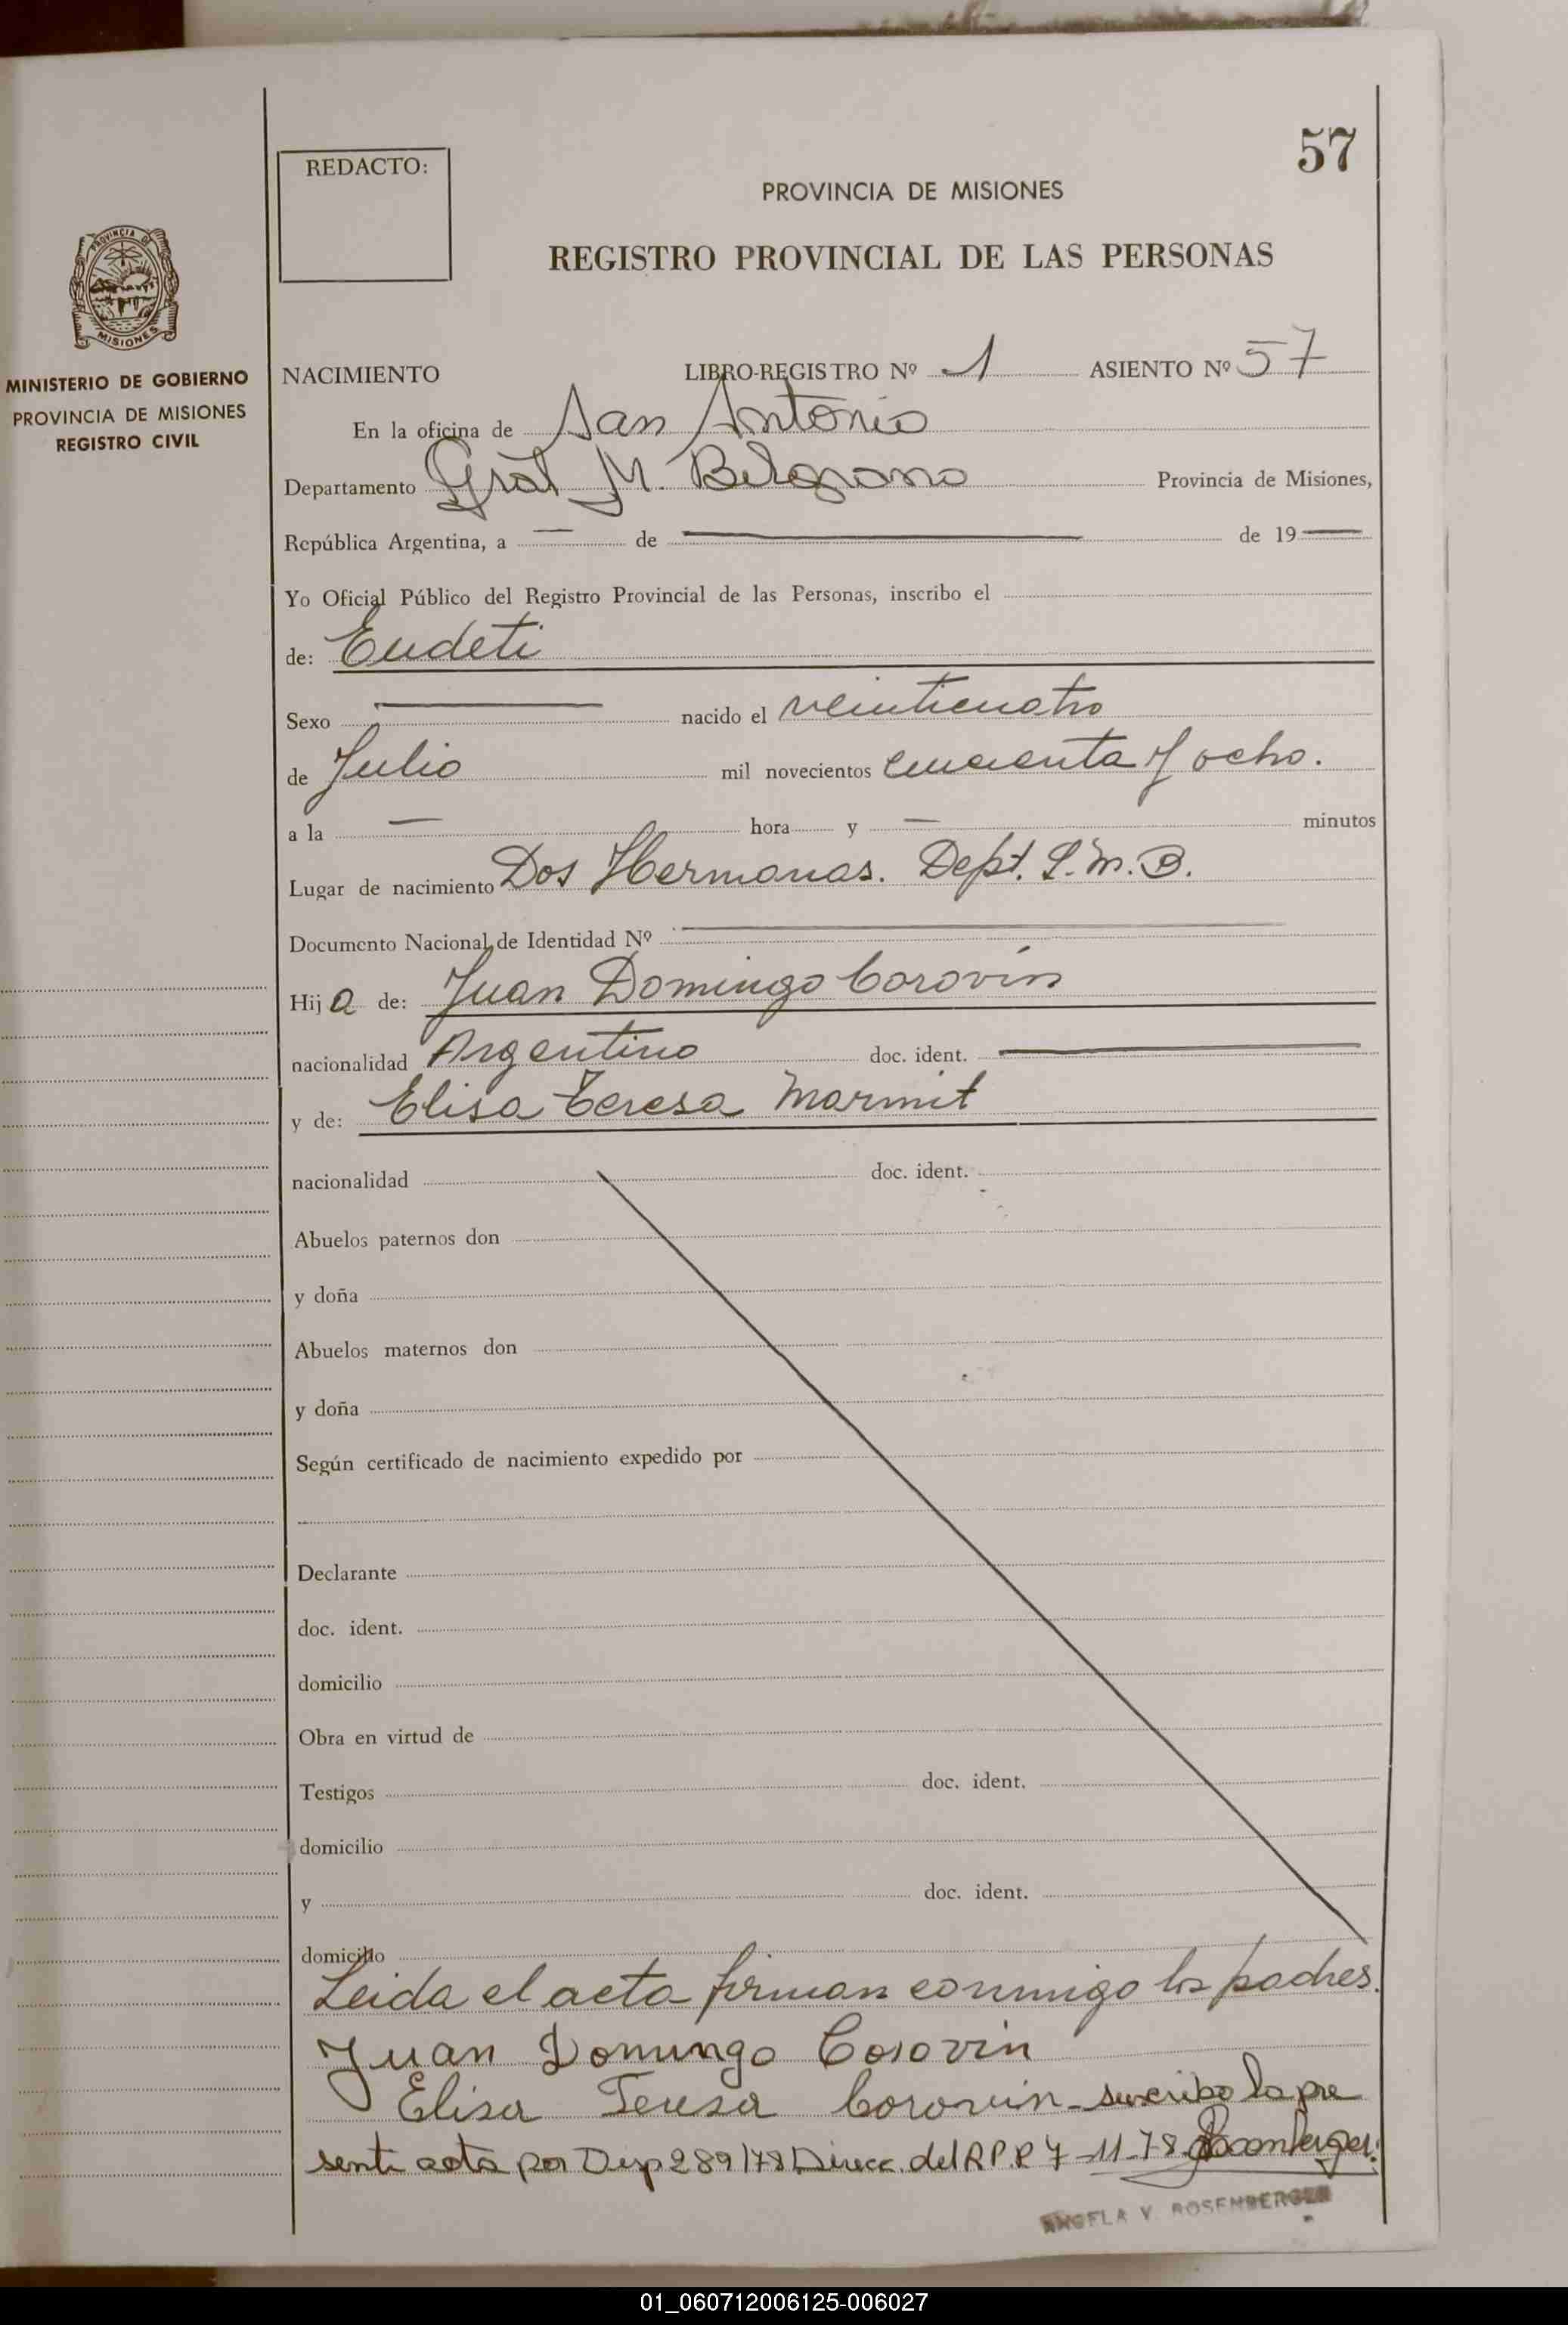 57
REDACTO:
PROVINCIA DE MISIONES
REGISTRO PROVINCIAL DE LAS PERSONAS
PROVINCIA DE
MISIONES
MINISTERIO DE GOBIERNO
PROVINCIA DE MISIONES
REGISTRO CIVIL
NACIMIENTO LIBRO-REGISTRO Nº 1 ASIENTO Nº 57
En la oficina de San Antonio
Departamento Gral M. Belgrano Provincia de Misiones,
República Argentina, a — de — de 19 —
Yo Oficial Público del Registro Provincial de las Personas, inscribo el
de: Eudeti
Sexo — nacido el veinticuatro
de Julio mil novecientos cincuenta y ocho.
a la — hora y — minutos
Lugar de nacimiento Dos Hermanas. Dept. G.M.B.
Documento Nacional de Identidad Nº —
Hija de: Juan Domingo Corovín
nacionalidad Argentino doc. ident. —
y de: Elisa Teresa Marmit
nacionalidad doc. ident.
Abuelos paternos don
y doña
Abuelos maternos don
y doña
Según certificado de nacimiento expedido por
Declarante
doc. ident.
domicilio
Obra en virtud de
Testigos doc. ident.
domicilio
y doc. ident.
domicilio
Leida el acta firman conmigo los padres.
Juan Domingo Corovin
Elisa Teresa Corovin - suscribo la pre
sente acta por Disp 289/78 Direcc. del R.P.P. 7-11-78
ANGELA V. ROSENBERGER
01_060712006125-006027